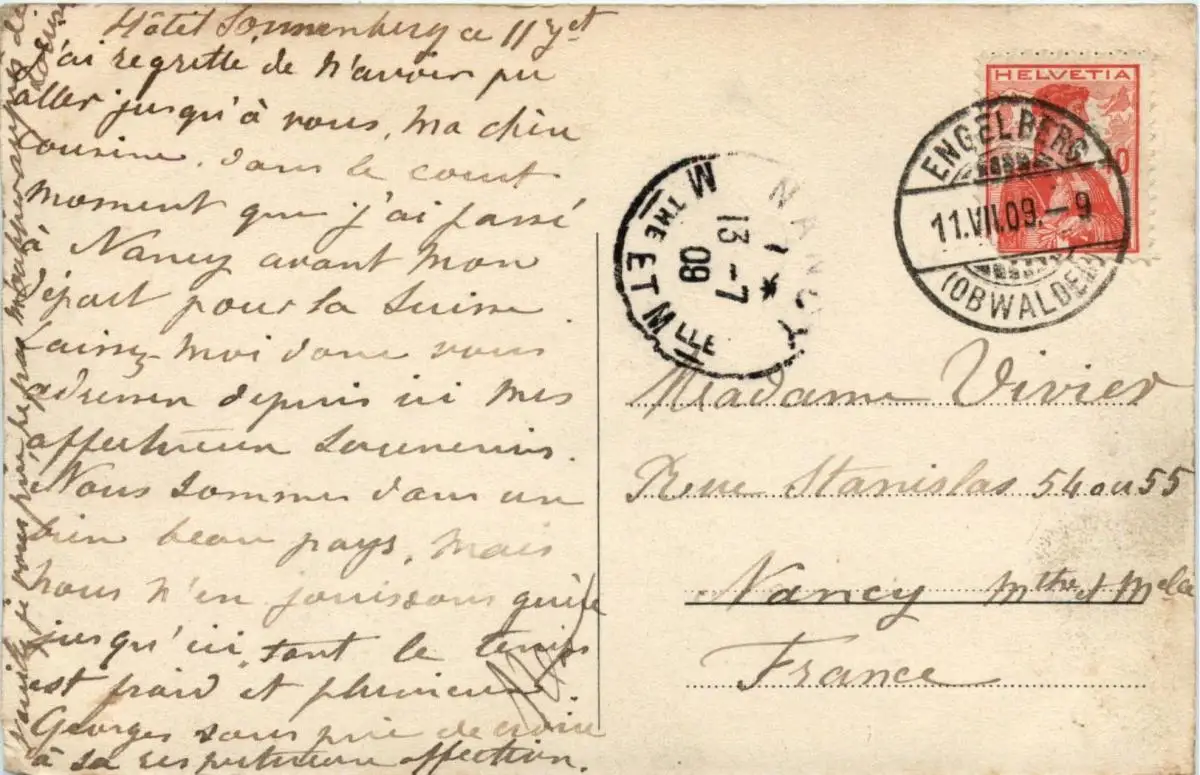 Hôtel Sonnenberg ce 11 Jet
J'ai regretté de n'avoir pu
aller jusqu'à vous, ma chère
Cousine. dans le court
moment que j'ai passé
à Nancy avant mon
départ pour la Suisse.
Laissez-moi donc vous
adresser depuis ici mes
affectueux souvenirs.
Nous sommes dans un
bien beau pays, mais
nous n'en jouissons guère
jusqu'ici, tant le temps
est froid et pluvieux.
Georges vous prie de croire
à sa respectueuse affection.
je vous prie, ne pas
HELVETIA
ENGELBERG
11.VII.09.-9
(OBWALDEN)
NANCY
13-7
09
MTHE ET MLLE
Madame Vivier
Rue Stanislas 54 ou 55
Nancy Mthe et Melle
France